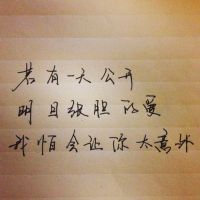 若有一天公开
明目张胆的爱
我怕会让你太意外